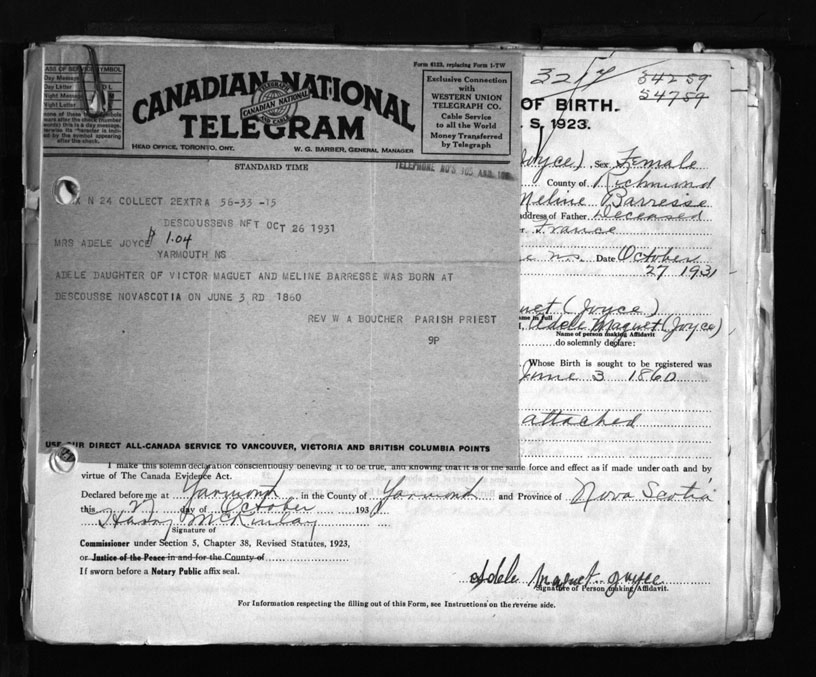 CLASS OF SERVICE SYMBOL
Day Message
Day Letter D L
Night Message
Night Letter
none of these symbols
appears after the check (number of
words) this is a day message.
Otherwise its character is indi-
cated by the symbol appearing
after the check.
Form 6123, replacing Form 1-TW
CANADIAN NATIONAL
TELEGRAM
CANADIAN NATIONAL
HEAD OFFICE, TORONTO, ONT. W. G. BARBER, GENERAL MANAGER
Exclusive Connection
with
WESTERN UNION
TELEGRAPH CO.
Cable Service
to all the World
Money Transferred
by Telegraph
STANDARD TIME
TELEPHONE NO'S 165 AND
X N 24 COLLECT 2EXTRA 56-33 -15
DESCOUSSENS NFT OCT 26 1931
1.04
MRS ADELE JOYCE
YARMOUTH NS
ADELE DAUGHTER OF VICTOR MAGUET AND MELINE BARRESSE WAS BORN AT
DESCOUSSE NOVASCOTIA ON JUNE 3 RD 1860
REV W A BOUCHER PARISH PRIEST
9P
USE OUR DIRECT ALL-CANADA SERVICE TO VANCOUVER, VICTORIA AND BRITISH COLUMBIA POINTS
3217 34259
54759
OF BIRTH.
S, 1923.
Joyce) Sex Female
County of Richmond
Meline Barresse
address of Father Deceased
France
n.s. Date October
27 1931
uet (Joyce)
Name in full
I, Adele Maquet (Joyce)
Name of person making Affidavit
do solemnly declare:
Whose Birth is sought to be registered was
June 3 1860
attached
I make this solemn declaration conscientiously believing it to be true, and knowing that it is of the same force and effect as if made under oath and by
virtue of The Canada Evidence Act.
Declared before me at Yarmouth in the County of Yarmouth and Province of Nova Scotia
this 27 day of October 193
Harry B McKinlay
Signature of
Commissioner under Section 5, Chapter 38, Revised Statutes, 1923,
or Justice of the Peace in and for the County of
If sworn before a Notary Public affix seal.
Adele Maquet Joyce
Signature of Person making Affidavit.
For Information respecting the filling out of this Form, see Instructions on the reverse side.